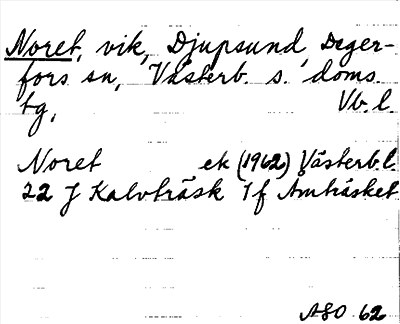 Noret, vik, Djupsund, Deger-
fors sn, Västerb. s. doms.
tg, Vb. l.
Noret ek (1962) Västerb.l.
22 J Kalvträsk 7 f Åmträsket
ASO 62